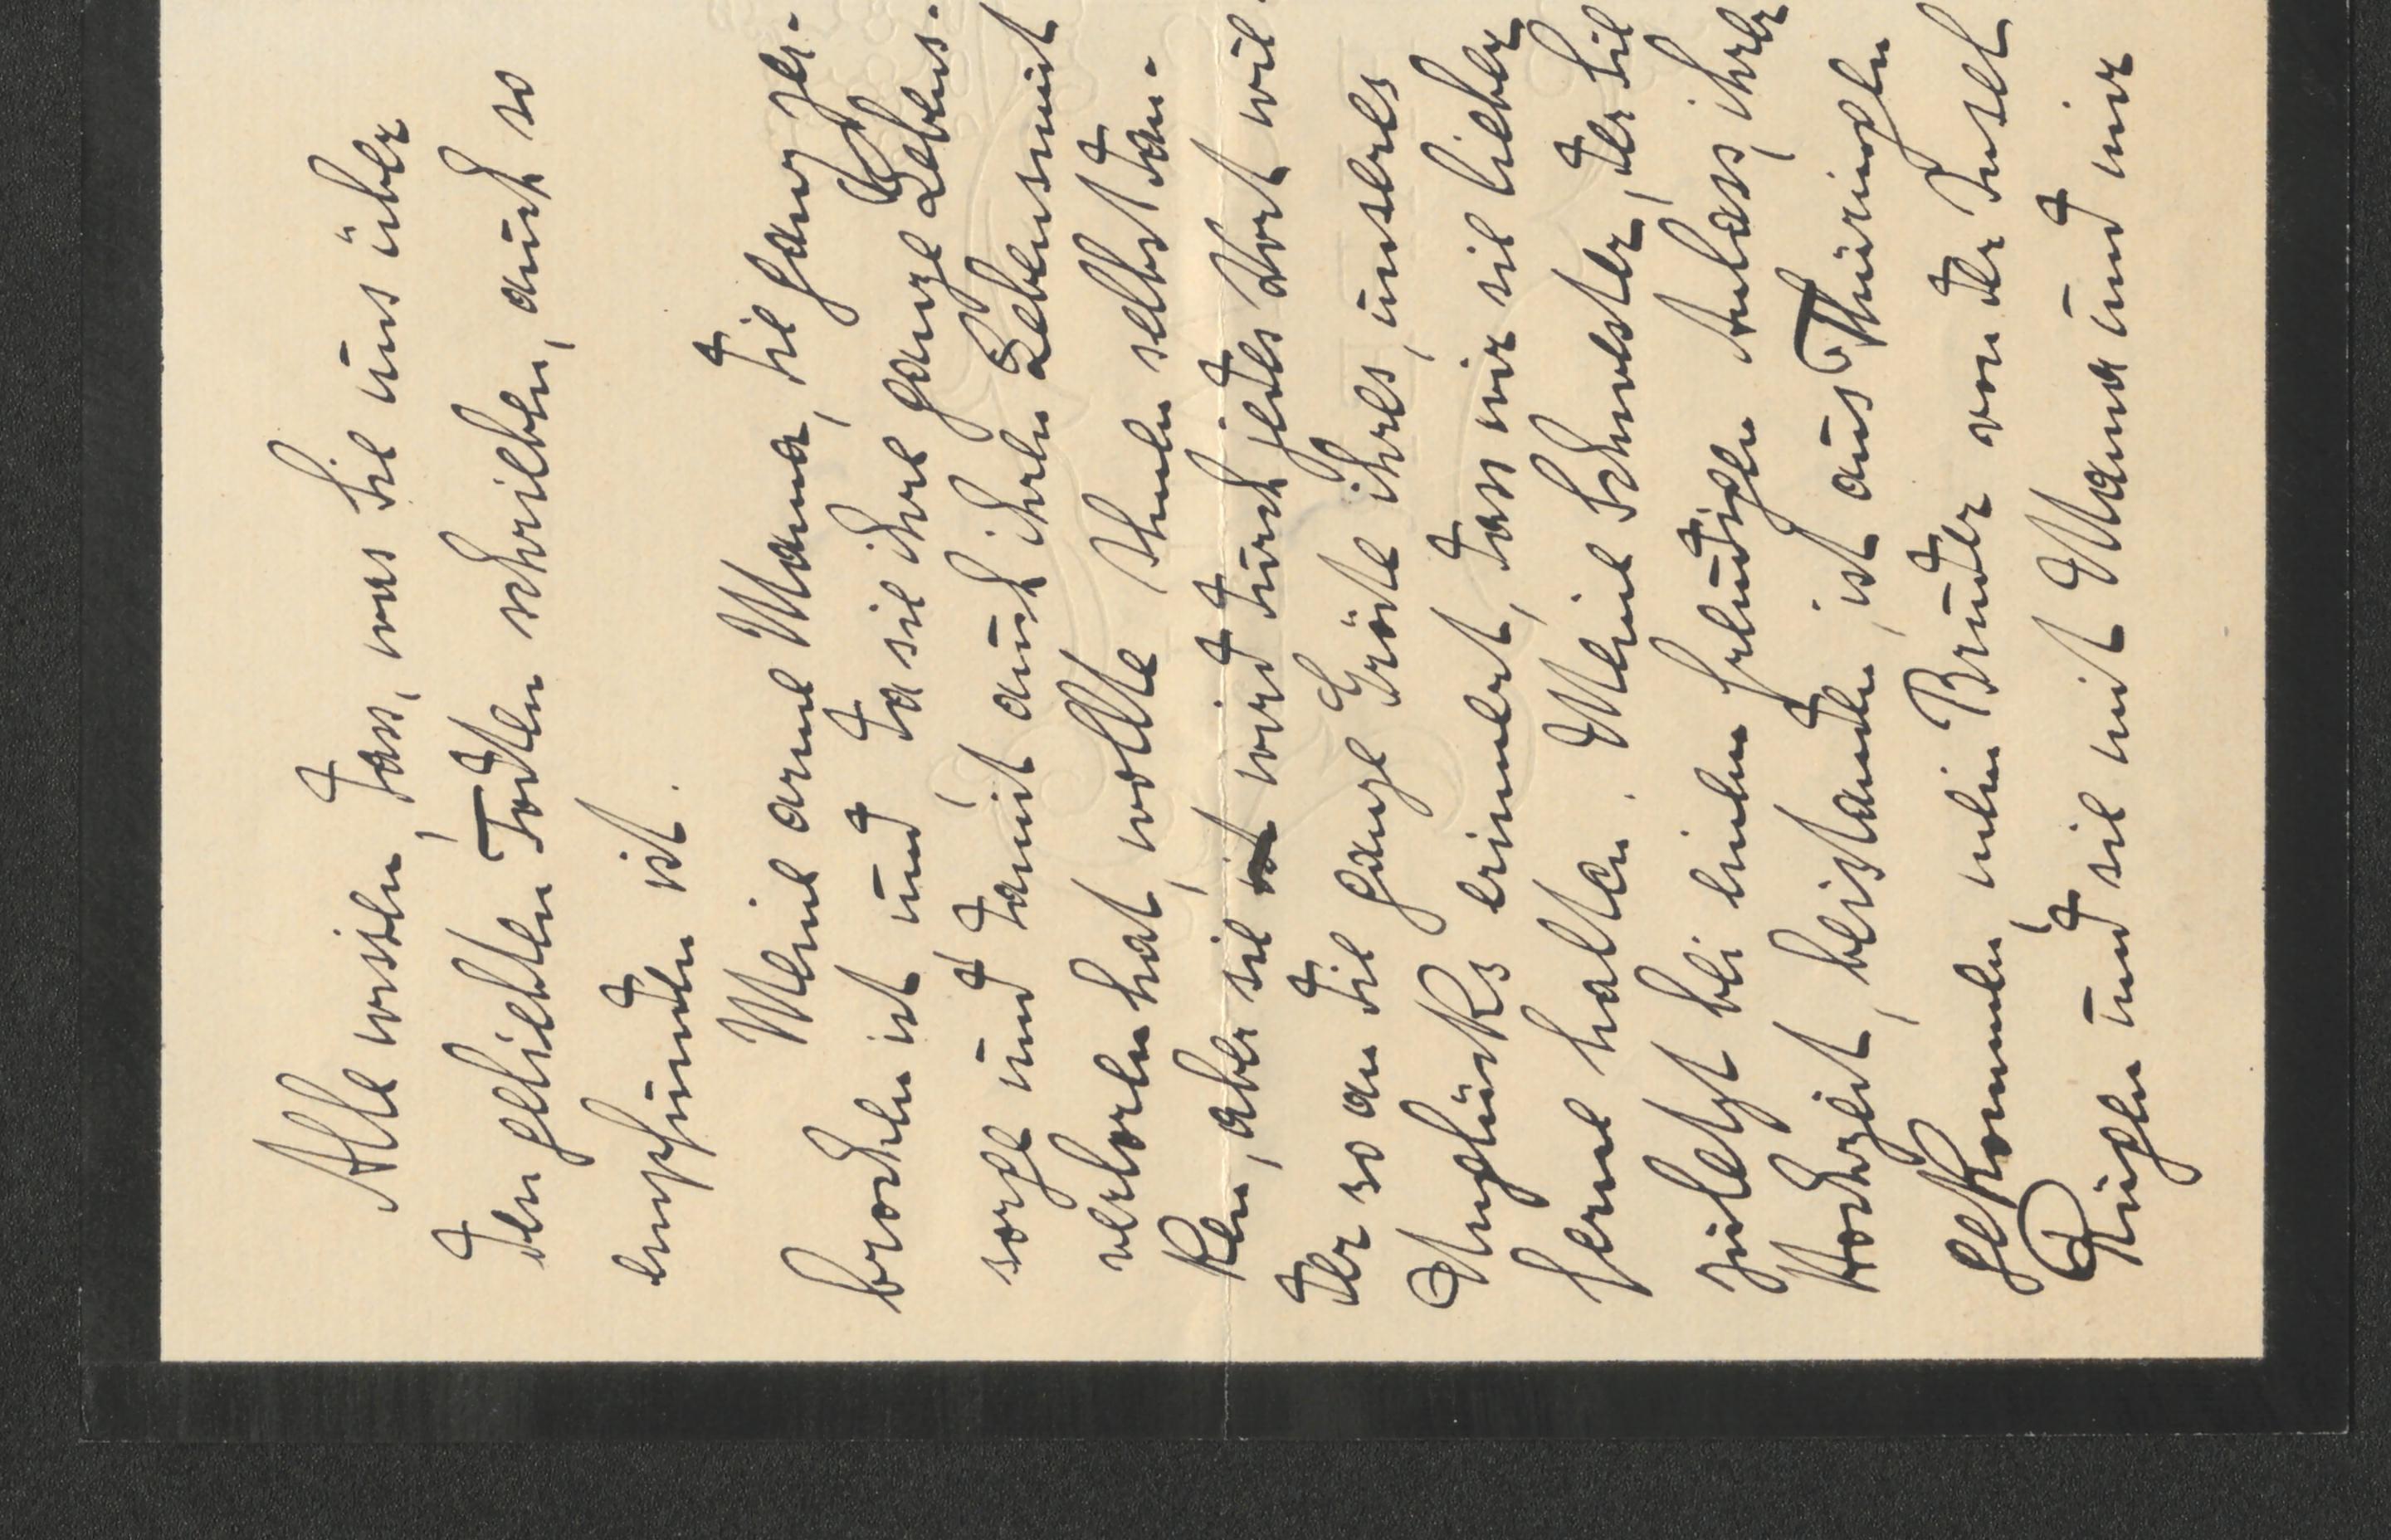 Alle wissen, dass, was Sie uns über
den geliebten Todten schrieben, auch so
empfunden ist.
Meine arme Mama, die ganz ge-
brochen ist und da sie ihre ganze Lebens-
sorge und damit auch ihren Lebensmut
verloren hat, wollte Ihnen selbst dan-
ken, aber sie wird durch jedes Wort wie-
der so an die ganze Größe ihres, unseres
Unglücks erinnert, dass wir sie lieber
ferne halten. Meine Schwester, der Sie
zuletzt bei einem freudigen Anlass, ihrer
Hochzeit, beistanden, ist aus Thüringen
gekommen, mein Bruder von der Insel
Rügen und sie mit Mama und mir